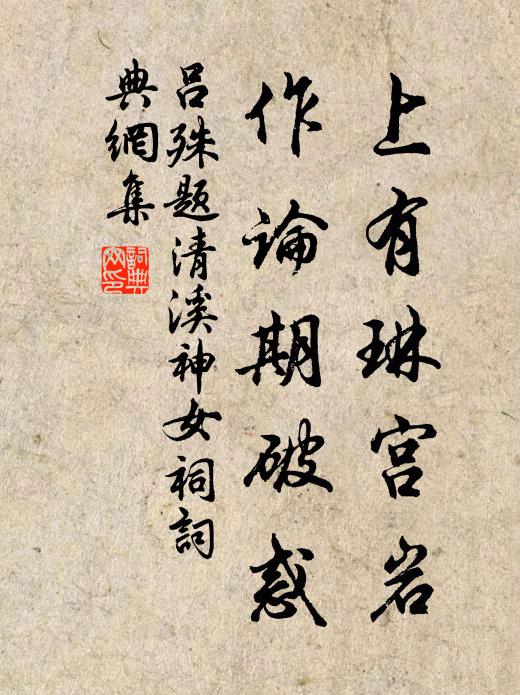 上有琳宫岩
作論期破惑
吕殊题清溪神女祠詞
典網集
詞典
网印